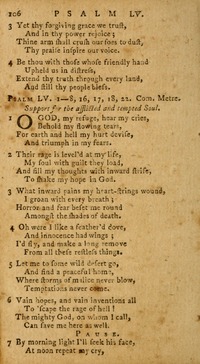 106 PSALM LV.
3 Yet thy forgiving grace we trust,
And in thy power rejoice;
Thine arm shall crush our foes to dust,
Thy praise inspire our voice.
4 Be thou with those whose friendly hand
Upheld us in distress,
Extend thy truth through every land,
And still thy people bless.
PSALM LV. 1—8, 16, 17, 18, 22. Com. Metre.
Support for the afflicted and tempted Soul.
1 O GOD, my refuge, hear my cries,
Behold my flowing tears,
For earth and hell my hurt devise,
And triumph in my fears.
2 Their rage is level'd at my life,
My soul with guilt they load,
And fill my thoughts with inward strife,
To shake my hope in God.
3 What inward pains my heart-strings wound,
I groan with every breath;
Horror and fear beset me round
Amongst the shades of death.
4 Oh were I like a feather'd dove,
And innocence had wings;
I'd fly, and make a long remove
From all these restless things.
5 Let me to some wild desert go,
And find a peaceful home,
Where storms of malice never blow,
Temptations never come.
6 Vain hopes, and vain inventions all
To 'scape the rage of hell!
The mighty God, on whom I call,
Can save me here as well.
PAUSE.
7 By morning light I'll seek his face,
At noon repeat my cry,